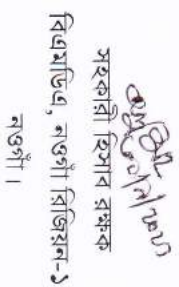 সহকারি হিসাব রক্ষক
বিএমডিএ, নওগাঁ রিজিয়ন-১
নওগাঁ।